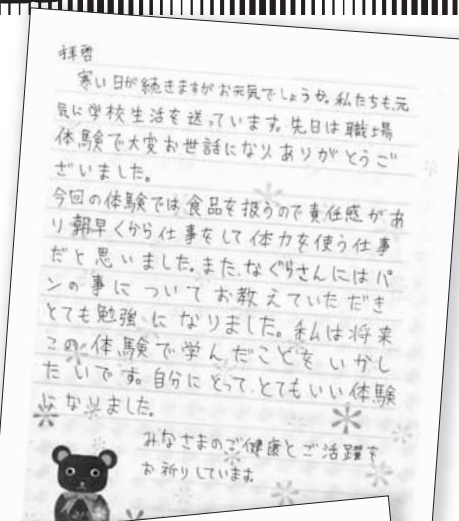 拝啓
寒い日が続きますがお元気でしょうか。私たちも元
気に学校生活を送っています。先日は職場
体験で大変お世話になりありがとうご
ざいました。
今回の体験では食品を扱うので責任感があ
り朝早くから仕事をして体力を使う仕事
だと思いました。また、なぐらさんにはパ
ンの事についてお教えていただき
とても勉強になりました。私は将来
この体験で学んだことをいかし
たいです。自分にとって、とてもいい体験
になりました。
みなさまのご健康とご活躍を
お祈りしています。